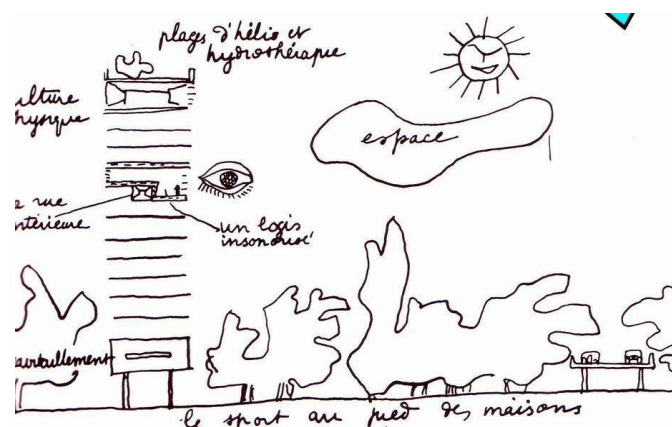 plages d'hélio et
hydrothérapie
ulture
hysique
espace
a rue
ntérieure
un logis
insonorisé
avitaillement
le sport au pied des maisons